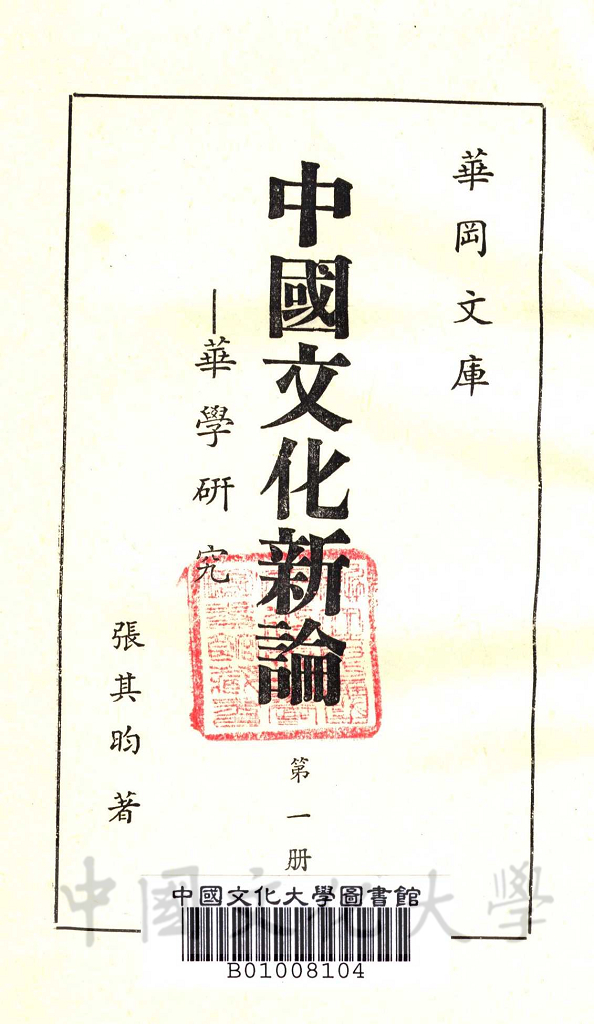 華岡文庫
中國文化新論
—華學研究
張其昀著
第一册
中國文化大學圖書館
B01008104
中國文化大學